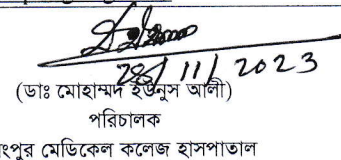 28/11/2023
(ডাঃ মোহাম্মদ ইউনুস আলী)
পরিচালক
রংপুর মেডিকেল কলেজ হাসপাতাল